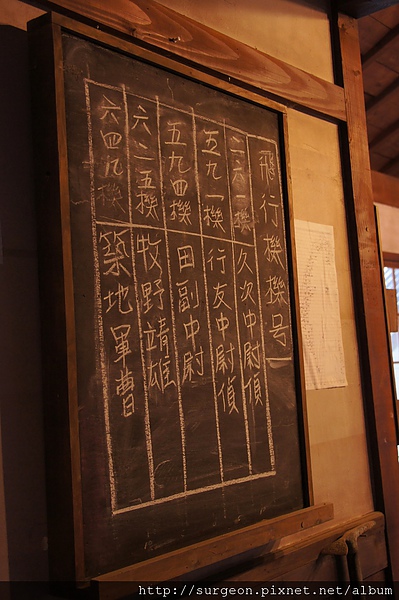 飛行機機号
二六一機 久次中尉偵
五九一機 行友中尉偵
五九四機 田副中尉
六二五機 牧野靖雄
六四九機 築地軍曹
http://surgeon.pixnet.net/album